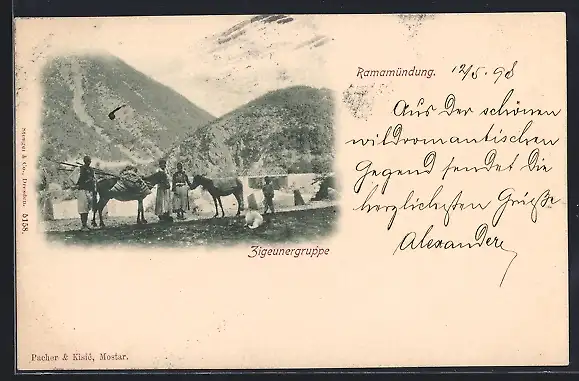 Ramamündung. 12/5. 98
Aus der schönen
wildromantischen
Gegend sendet Die
herzlichsten Grüße
Alexander
Zigeunergruppe
Stengel & Co., Dresden. 5158.
Pacher & Kisić, Mostar.